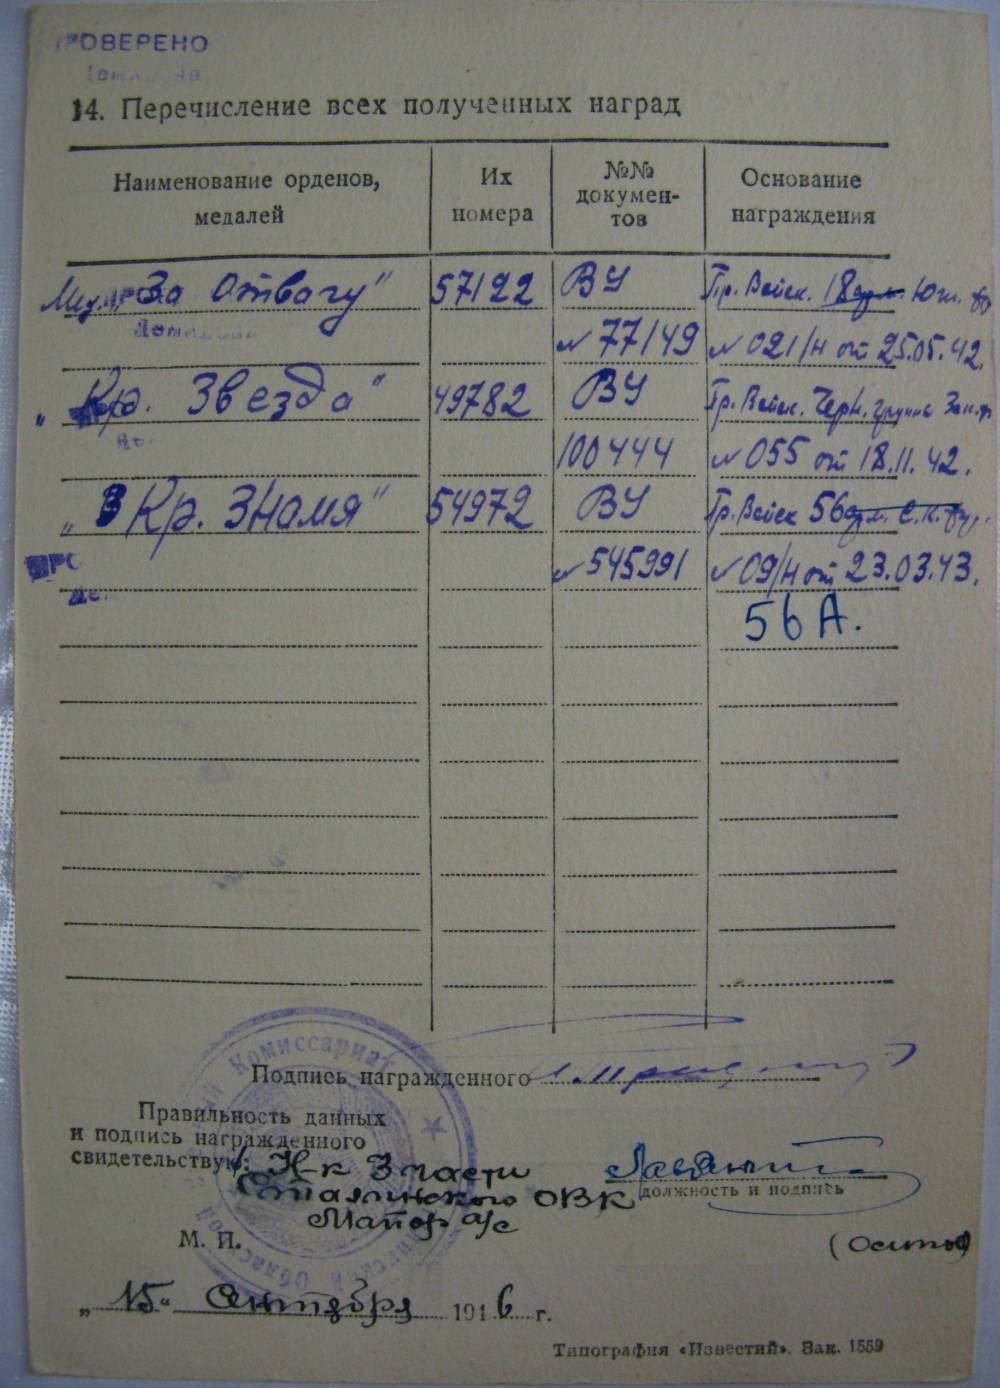 ПРОВЕРЕНО
14. Перечисление всех полученных наград
Наименование орденов, медалей
Их номера
№№ докумен-тов
Основание награждения
Мед. „За Отвагу" 57122 ВУ Пр. Войск. 18 арм. Юж. фр
№ 77149 № 021/н от 25.05.42.
„Кр. Звезда" 49782 ВУ Пр. Войск. Черн. группа Зак. ф
100444 № 055 от 18.11.42.
„Кр. Знамя" 54972 ВУ Пр. Войск 56 арм. С.К. фр.
№ 545991 № 09/н от 23.03.43.
56 А.
Комиссариат
Подпись награжденного
Правильность данных
и подпись награжденного
свидетельствую: Н-к 3 части
Сталинского ОВК
должность и подпись
Майор а/с
М. П.
„15" Сентября 1946 г.
Типография «Известий». Зак. 1559